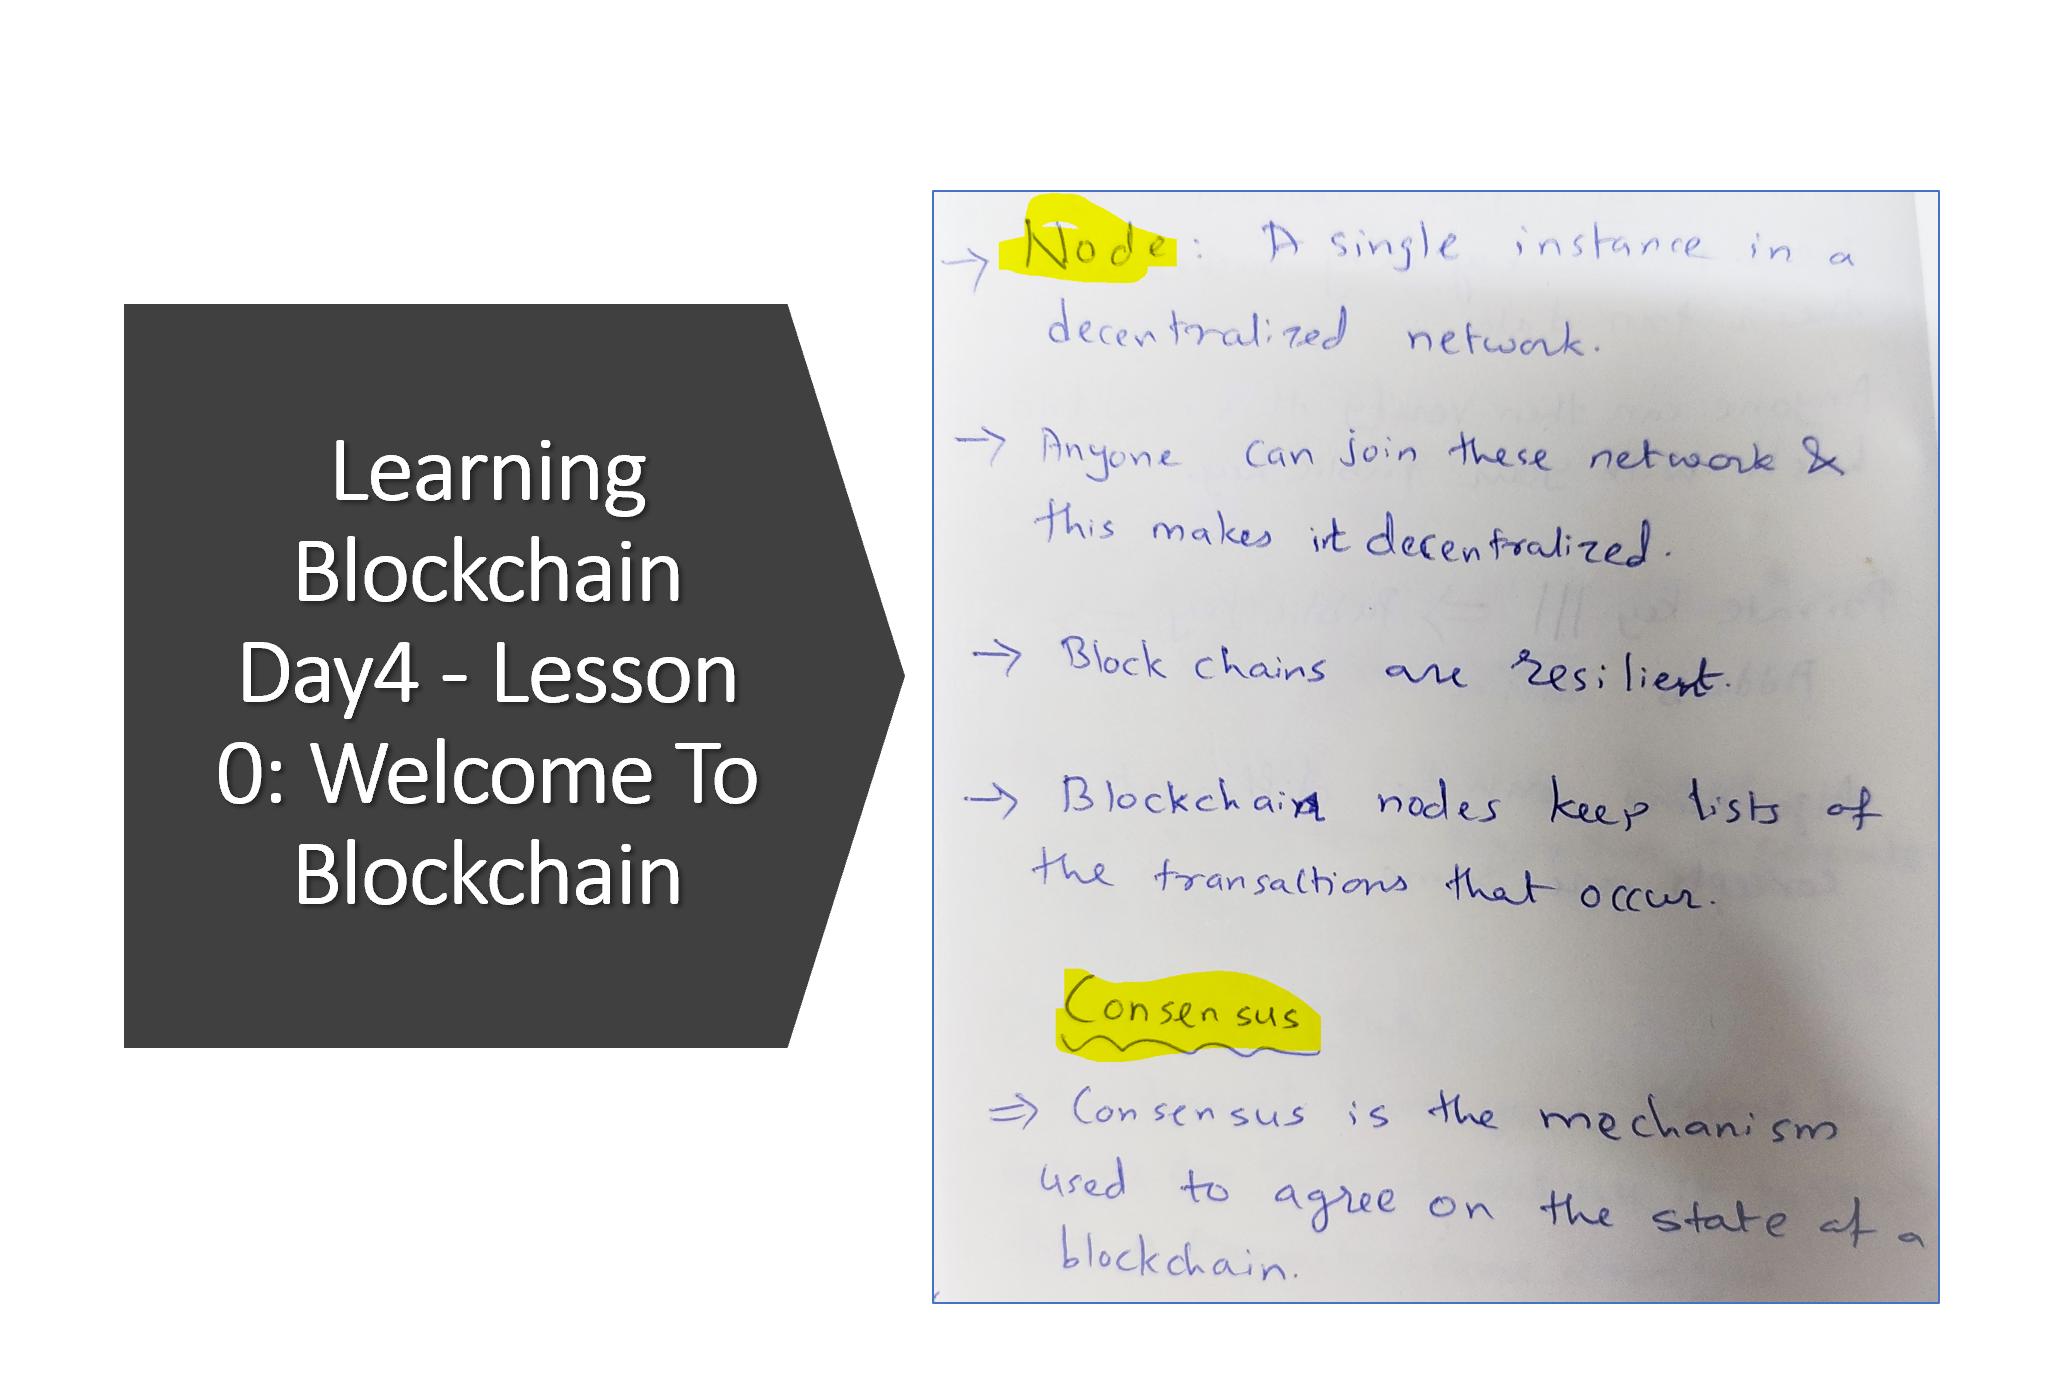 Learning
Blockchain
Day4 - Lesson
0: Welcome To
Blockchain
→ Node: A single instance in a
decentralized network.
→ Anyone can join these network &
this makes it decentralized.
→ Block chains are resilient.
→ Blockchain nodes keep lists of
the transactions that occur.
Consensus
⇒ Consensus is the mechanism
used to agree on the state of a
blockchain.